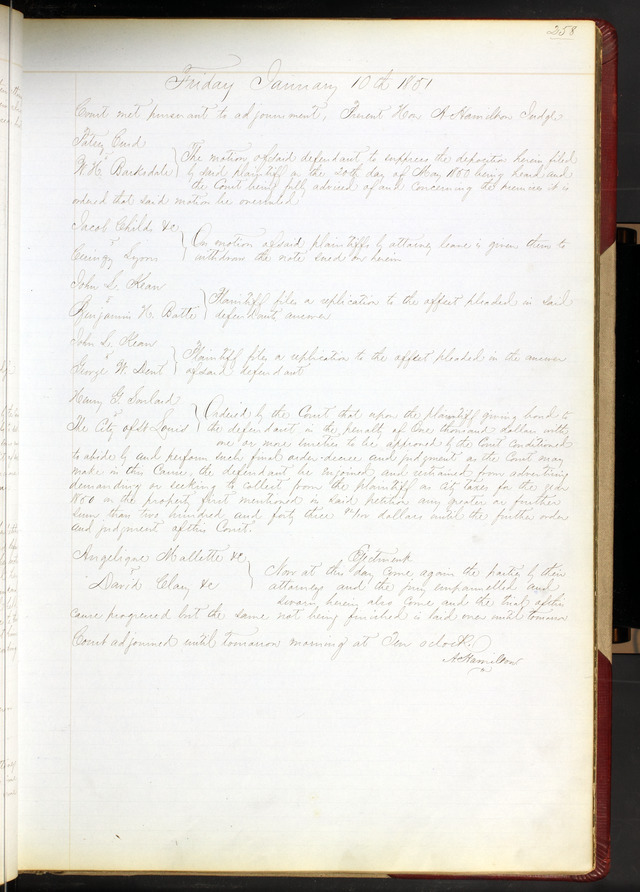 258
Friday January 10th 1851
Court met pursuant to adjournment, Present Hon A Hamilton Judge
Patsey Curd
vs
W. H. Barksdale } The motion of said defendant to suppress the deposition herein filed
by said plaintiff on the 20th day of May 1850 being heard and
the Court being fully advised of and concerning the premises it is
ordered that said motion be overruled
Jacob Child &c
vs
Lyons } On motion of said plaintiffs by attorney leave is given them to
withdraw the note sued on herein
John L. Kean
vs
Benjamin W. Batte } Plaintiff files a replication to the offset pleaded in said
defendants answer
John L. Kean
vs
George W. Dent } Plaintiff file a replication to the offset pleaded in the answer
of said defendant
Henry G. Soulard
vs
The City of St Louis } Ordered by the Court that upon the plaintiff giving bond to
the defendant in the penalty of One thousand dollars with
one or more sureties to be approved by the Court conditioned
to abide by and perform such final order decree and judgment as the Court may
make in this Cause, the defendant be enjoined and restrained from advertising
demanding or seeking to collect from the plaintiff as City taxes for the year
1850 on the property first mentioned in said petition any greater or further
sum than two hundred and forty three /100 dollars until the further order
and judgment of this Court.
Angelique Mallette &c
vs
David Clary &c } Ejectment
Now at this day come again the parties by their
attorneys and the jury empannelled and
sworn herein also come and the trial of this
cause progressed but the same not being finished is laid over until tomorrow
Court adjourned until tomorrow morning at Ten o'clock.
A Hamilton